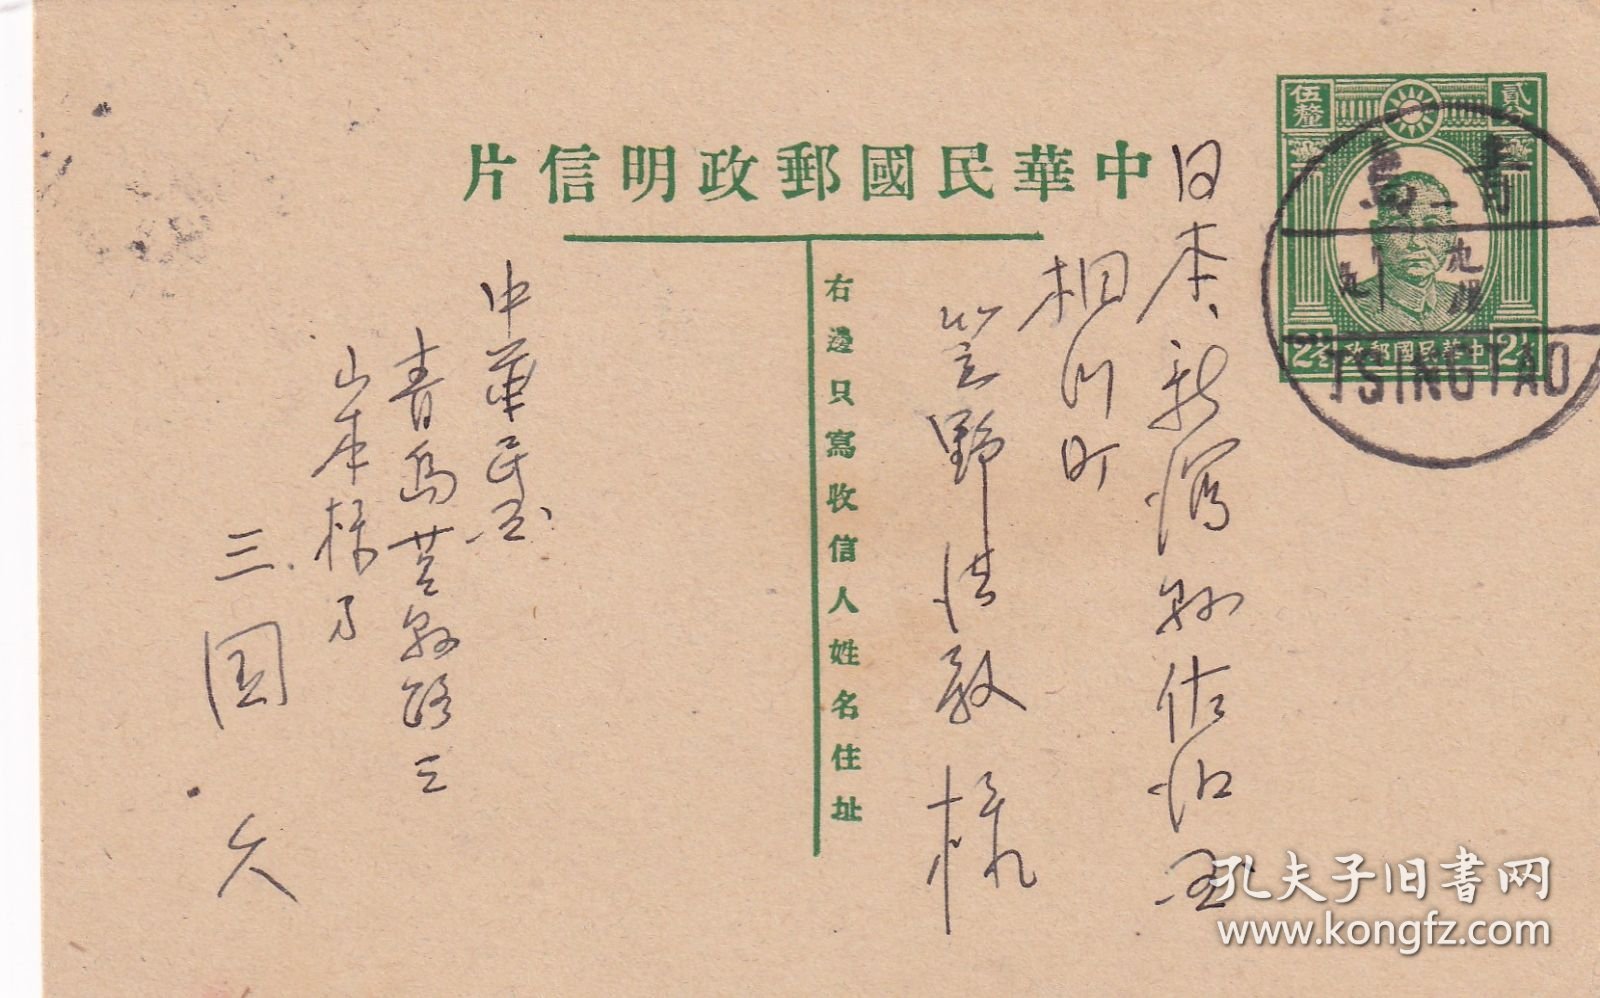 中華民國郵政明信片
右邊只寫收信人姓名住址
伍釐
貳分
中華民國郵政
2½
2½
青島
九
TSINGTAO
日本、新潟縣佐渡
相川町
笠野
様
中華民國
青島
山本様方
三国 久
孔夫子旧书网
www.kongfz.com